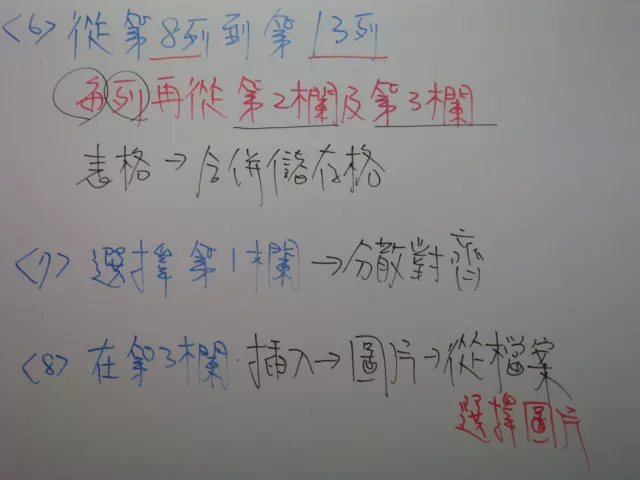 <6> 從第8列到第13列
每列再從第2欄及第3欄
表格→合併儲存格
<7> 選擇第1欄→分散對齊
<8> 在第3欄.插入→圖片→從檔案
選擇圖片